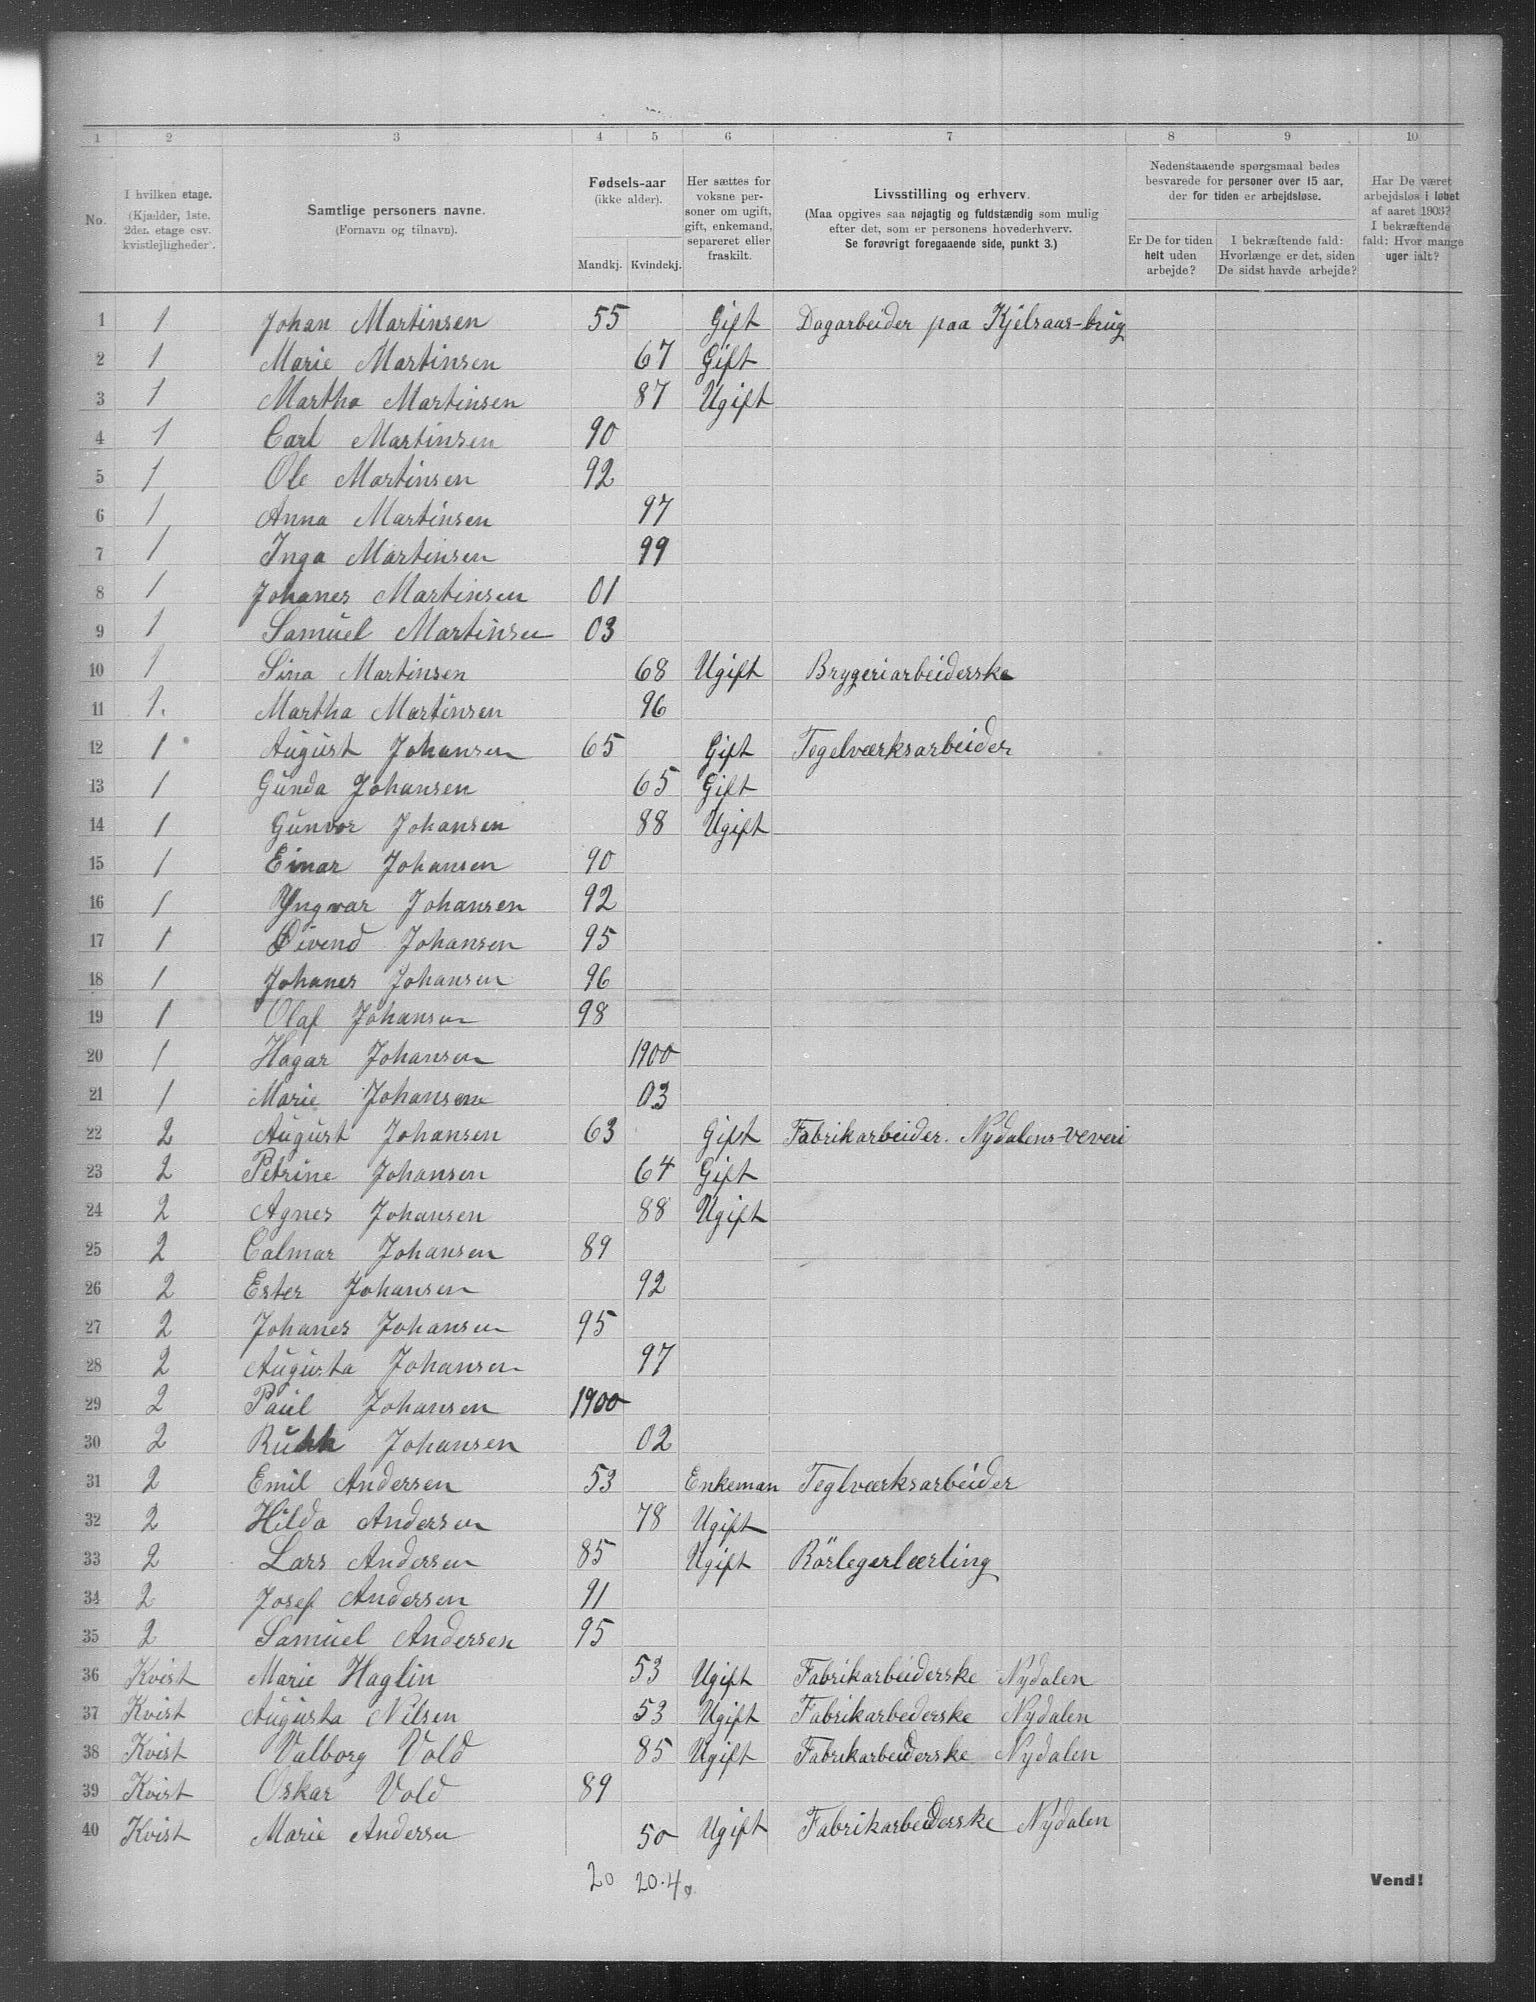 1 2 3 4 5 6 7 8 9 10
No.
I hvilken etage.
(Kjælder, 1ste, 2den etage osv. kvistlejligheder).
Samtlige personers navne.
(Fornavn og tilnavn).
Fødsels-aar
(ikke alder).
Mandkj. Kvindekj.
Her sættes for voksne personer om ugift, gift, enkemand, separeret eller fraskilt.
Livsstilling og erhverv.
(Maa opgives saa nøjagtig og fuldstændig som mulig
efter det, som er personens hovederhverv.
Se forøvrigt foregaaende side, punkt 3.)
Nedenstaaende spørgsmaal bedes
besvarede for personer over 15 aar,
der for tiden er arbejdsløse.
Er De for tiden helt uden arbejde?
I bekræftende fald: Hvorlænge er det, siden De sidst havde arbejde?
Har De været arbejdsløs i løbet af aaret 1903? I bekræftende fald: Hvor mange uger ialt?
1 1 Johan Martinsen 55 Gift Dagarbeider paa Kjelsaas-brug
2 1 Marie Martinsen 67 Gift
3 1 Martha Martinsen 87 Ugift
4 1 Carl Martinsen 90
5 1 Ole Martinsen 92
6 1 Anna Martinsen 97
7 1 Inga Martinsen 99
8 1 Johanes Martinsen 01
9 1 Samuel Martinsen 03
10 1 Sina Martinsen 68 Ugift Brygeriarbeiderske
11 1. Martha Martinsen 96
12 1 August Johansen 65 Gift Tegelværksarbeider
13 1 Gunda Johansen 65 Gift
14 1 Gunvor Johansen 88 Ugift
15 1 Einar Johansen 90
16 1 Yngvar Johansen 92
17 1 Øivend Johansen 95
18 1 Johanes Johansen 96
19 1 Olaf Johansen 98
20 1 Hagar Johansen 1900
21 1 Marie Johansen 03
22 2 August Johansen 63 Gift Fabrikarbeider. Nydalens-veveri
23 2 Petrine Johansen 64 Gift
24 2 Agnes Johansen 88 Ugift
25 2 Calmar Johansen 89
26 2 Ester Johansen 92
27 2 Johanes Johansen 95
28 2 Augusta Johansen 97
29 2 Paul Johansen 1900
30 2 Ruth Johansen 02
31 2 Emil Andersen 53 Enkeman Teglværksarbeider
32 2 Hilda Andersen 78 Ugift
33 2 Lars Andersen 85 Ugift Rörlegerlærling
34 2 Josef Andersen 91
35 2 Samuel Andersen 95
36 Kvist Marie Haglin 53 Ugift Fabrikarbeiderske Nydalen
37 Kvist Augusta Nilsen 53 Ugift Fabrikarbederske Nydalen
38 Kvist Valborg Vold 85 Ugift Fabrikarbeiderske Nydalen
39 Kvist Oskar Vold 89
40 Kvist Marie Andersen 50 Ugift Fabrikarbeiderske Nydalen
20 20.40
Vend!